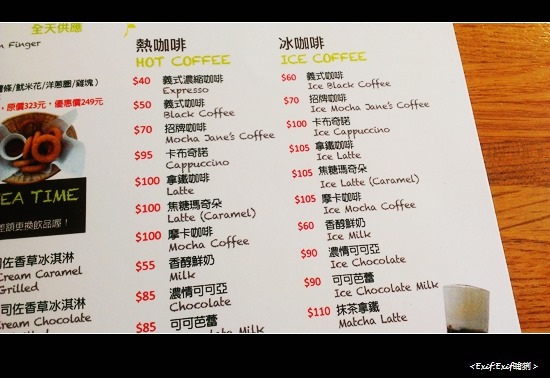 全天供應
n Finger
條/魷米花/洋蔥圈/雞塊)
，原價323元，優惠價249元
EA TIME
差額更換飲品喔！
司佐香草冰淇淋
Cream Caramel
Grilled
司佐香草冰淇淋
Cream Chocolate
熱咖啡
HOT COFFEE
$40 義式濃縮咖啡
Expresso
$50 義式咖啡
Black Coffee
$70 招牌咖啡
Mocha Jane's Coffee
$95 卡布奇諾
Cappuccino
$100 拿鐵咖啡
Latte
$100 焦糖瑪奇朵
Latte (Caramel)
$100 摩卡咖啡
Mocha Coffee
$55 香醇鮮奶
Milk
$85 濃情可可亞
Chocolate
$85 可可芭蕾
Chocolate Milk
冰咖啡
ICE COFFEE
$60 義式咖啡
Ice Black Coffee
$70 招牌咖啡
Ice Mocha Jane's Coffee
$100 卡布奇諾
Ice Cappuccino
$105 拿鐵咖啡
Ice Latte
$105 焦糖瑪奇朵
Ice Latte (Caramel)
$105 摩卡咖啡
Ice Mocha Coffee
$60 香醇鮮奶
Ice Milk
$90 濃情可可亞
Ice Chocolate
$90 可可芭蕾
Ice Chocolate Milk
$110 抹茶拿鐵
Matcha Latte